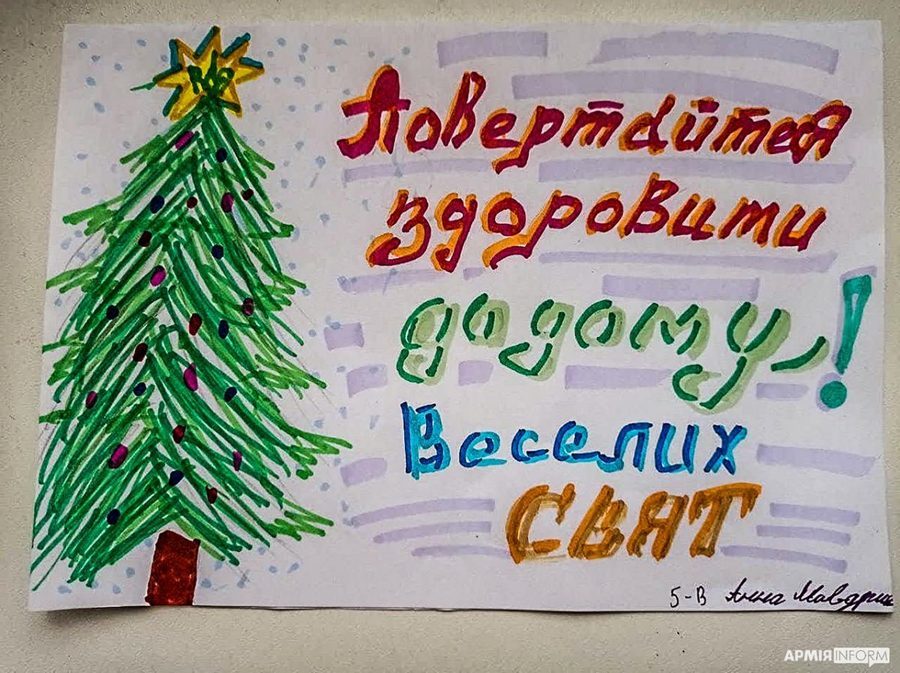 Повертайтея
здоровими
додому!
Веселих
СВЯТ
5-В Анна
АРМІЯINFORM